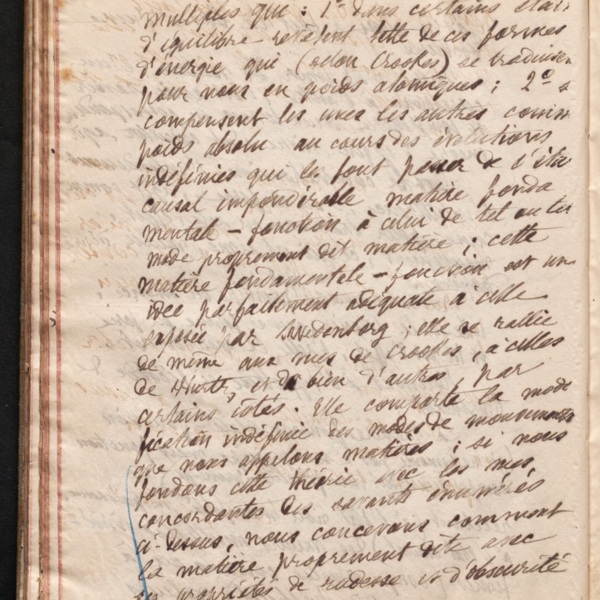 multiples que : 1° dans certains états
d'équilibre revêtent telle de ces formes
d'énergie qui (selon Crookes) se traduisent
pour nous en poids atomiques ; 2° se
compensent les unes les autres comme
poids absolu au cours des évolutions
indéfinies qui les font passer de l'état
causal impondérable matière fonda
mentale - fonction à celui de tel ou tel
mode proprement dit matière ; cette
matière fondamentale - fonction est une
idée parfaitement adéquate à celle
exposée par Swedenborg ; elle se rallie
de même aux vues de Crookes, à celles
de Wurtz, et de bien d'autres par
certains côtés. Elle comporte la modi
fication indéfinie des modes de mouvements
que nous appelons matières ; si nous
fondons cette théorie avec les vues
concordantes des savants énumérés
ci-dessus, nous concevons comment
la matière proprement dite avec
propriétés de rudesse et d'obscurité